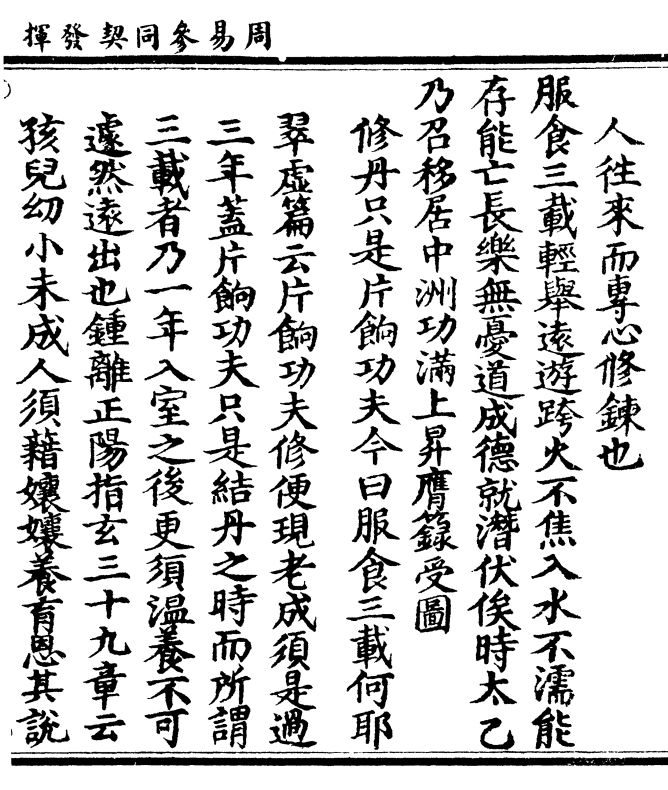 周易參同契發揮
人往來而專心修鍊也
服食三載輕舉遠遊跨火不焦入水不濡能
存能亡長樂無憂道成德就潛伏俟時太乙
乃召移居中洲功滿上昇膺籙受圖
修丹只是片餉功夫今曰服食三載何耶
翠虛篇云片餉功夫修便現老成須是過
三年蓋片餉功夫只是結丹之時而所謂
三載者乃一年入室之後更須溫養不可
遽然遠出也鍾離正陽指玄三十九章云
孩兒幼小未成人須藉孃孃養育恩其說